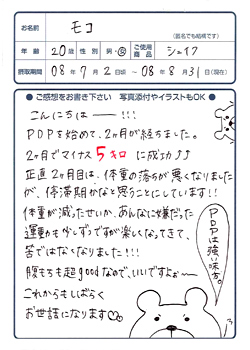 お名前
モコ
（匿名でも結構です）
年齢 20歳 性別 男・女 ご使用商品 シェイプ
摂取期間 08年7月2日頃 ～ 08年8月31日（現在）
● ご感想をお書き下さい 写真添付やイラストもOK ●
こんにちはー!!!
PDPS始めて、2ヶ月が経ちました。
2ヶ月でマイナス5キロに成功♪♪
正直2ヶ月目は、体重の落ちが悪くなりました
が、停滞期かなと思うことにしています!!
体重が減ったせいか、あんなに嫌だった
運動も少しずつですが楽しくなってきて、
苦ではなくなりました!!!
腹もちも超goodなので、いいですよぉ～
これからもしばらく
お世話になります♡
PDPは強い味方。